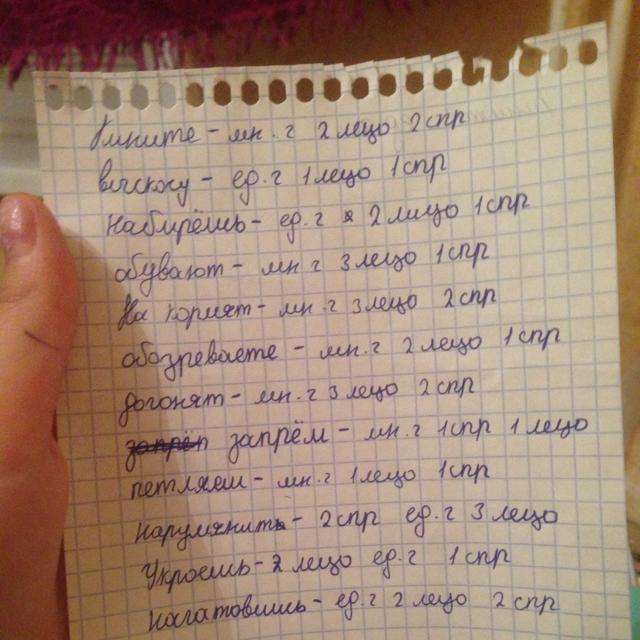 Кините - мн. г 2 лецо 2 спр
выскосу - ед. г 1 лецо 1 спр
Набирёешь - ед. г 2 лицо 1 спр
обувают - мн г 3 лецо 1 спр
На кормят - мн. г 3 лецо 2 спр
обозреваете - мн. г 2 лецо 1 спр
догонят - мн. г 3 лецо 2 спр
запрём - мн. г 1 спр 1 лецо
петляем - мн. г 1 лецо 1 спр
нарумянить - 2 спр ед. г 3 лецо
Укроешь - 2 лецо ед. г 1 спр
- ед. г 2 лецо 2 спр